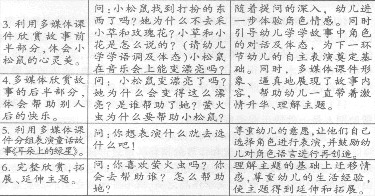 3. 利用多媒体课
件欣赏故事前
半部分,体会小
松鼠的心灵美。
问:小松鼠找到打扮的东
西了吗?她为什么不去采
小草和玫瑰花?小草和小
花是怎么说的?(请幼儿
学学语词及体态)小松鼠
在音乐会上能变漂亮吗?
随着提问的深入,幼儿进
一步体验角色情感。同时
引导幼儿学学故事中角色
的对话及体态,为下一环
节幼儿的自主表演奠定基
础。同时,多媒体课件形
象、逼真地展现了故事内
容,帮助幼儿一直带着激
情升华、理解主题。
4.多媒体欣赏故
事的后半部分,
体会帮助别人
后的快乐。
问:小松鼠变漂亮了吗?
她为什么会变得这么漂
亮?是谁帮助了她?萤火
虫为什么要帮助小松鼠?
5.利用多媒体课
件分组表演童话故
事《耳朵上的绿星》。
问:你想表演什么就去连
什么吧!
尊重幼儿的意愿,让他们自己
选择角色进行表演,并鼓励幼
儿对角色语言进行再创造。
6. 完整欣赏,拓
展、延伸主题。
问:你喜欢萤火虫吗?你
会去帮助谁?怎么帮助
她?
理解主题的基础上迁移情
感,尊重幼儿的生活经验,
使主题得到延伸和拓展。